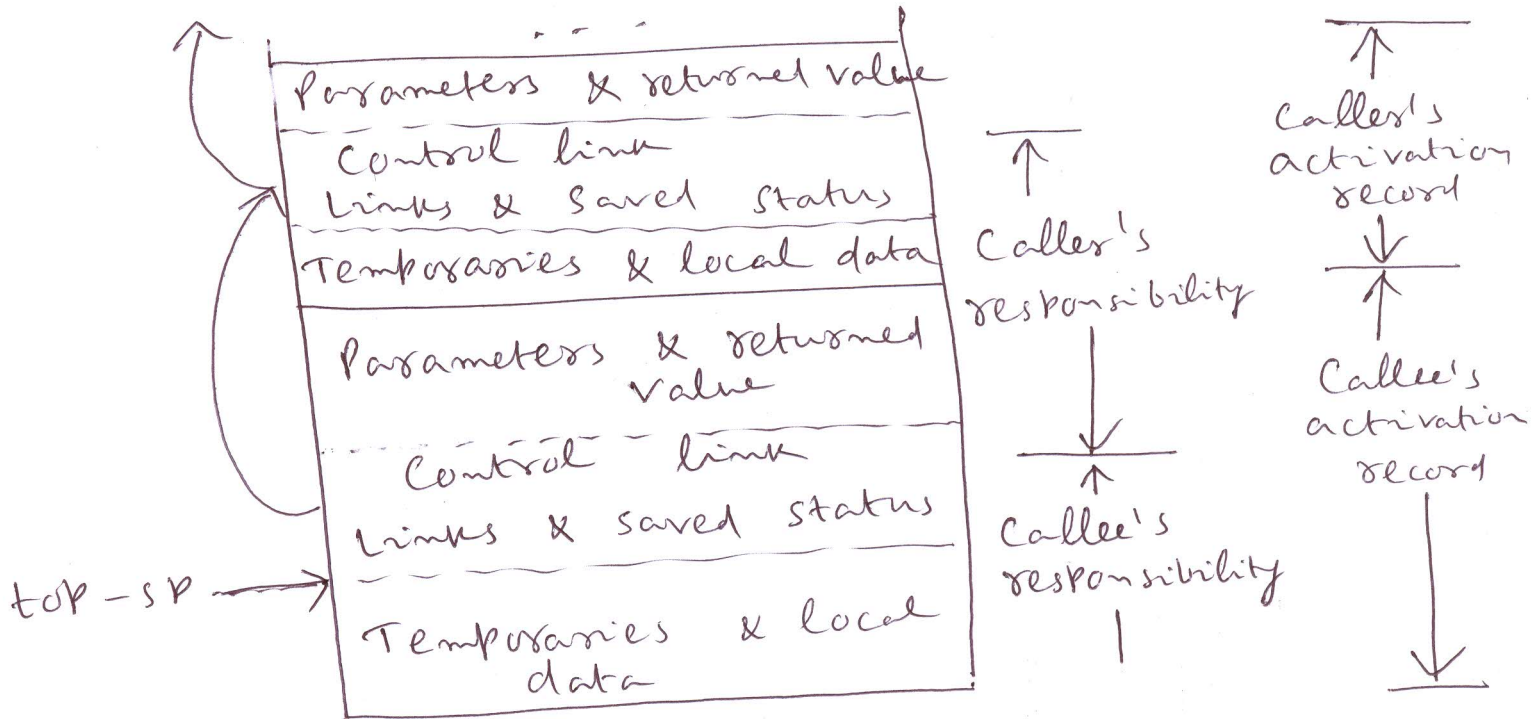 Parameters & returned value
Control link
Links & Saved Status
Temporaries & local data
Parameters & returned
value
Control link
Links & saved status
Temporaries & local
data
top-sp
Caller's
responsibility
Callee's
responsibility
Caller's
activation
record
Callee's
activation
record